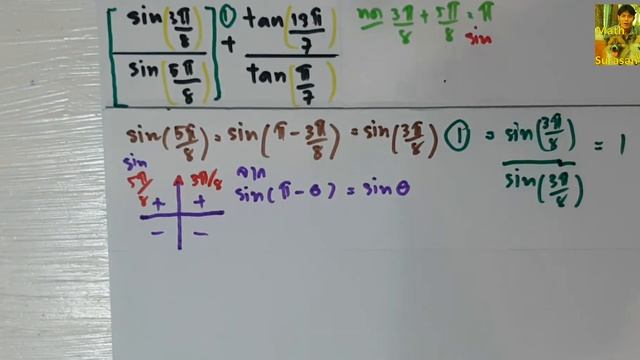 [sin(3π/8) / sin(5π/8)] ① + tan(13π/7) / tan(π/7)
3π/8 + 5π/8 = π
sin
Math
Surasan
sin(5π/8) = sin(π - 3π/8) = sin(3π/8) ① = sin(3π/8) / sin(3π/8) = 1
sin
5π/8 3π/8
+ +
- -
จาก
sin(π - θ) = sin θ